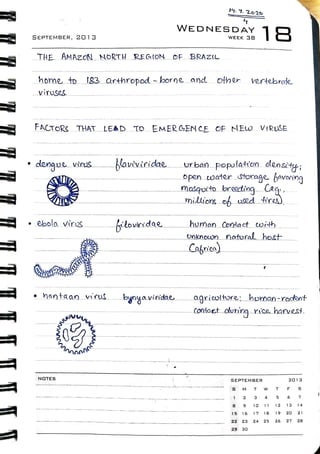 14.7.2020
SEPTEMBER, 2013
WEDNESDAY 18
WEEK 38
THE AMAZON NORTH REGION OF BRAZIL
home to 183 arthropod-borne and other vertebrate
viruses.
FACTORS THAT LEAD TO EMERGENCE OF NEW VIRUSE
• dengue virus flaviviridae urban population density;
open water storage favoring
mosquito breeding (eg.
millions of used tires)
• ebola virus filoviridae human contact with
unknown natural host
(africa)
• hantaan virus bunyaviridae agriculture: human-rodent
contact during rice harvest.
NOTES
SEPTEMBER 2013
S M T W T F S
1 2 3 4 5 6 7
8 9 10 11 12 13 14
15 16 17 18 19 20 21
22 23 24 25 26 27 28
29 30